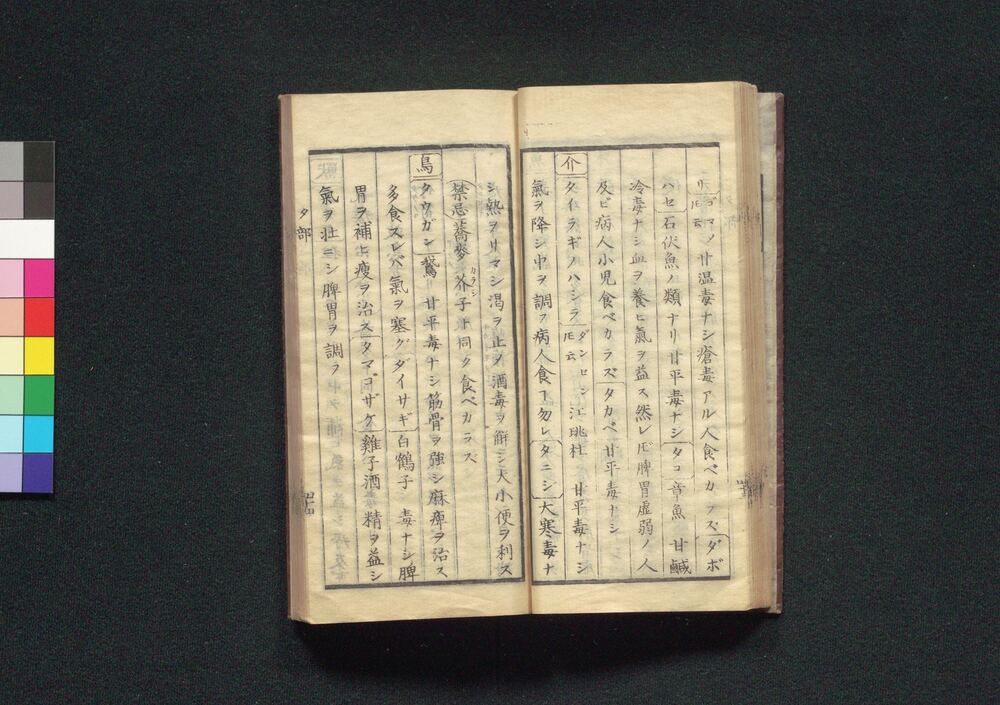 甘温毒ナシ瘡毒アル人食ベカラズダボ
ハセ石伏魚ノ類ナリ甘平毒ナシタコ章魚 甘鹹
冷毒ナシ血ヲ養ヒ氣ヲ益ス然レ𪜈脾胃虚弱ノ人
及ビ病人小児食ベカラズタカベ甘平毒ナシ
介
タイラギノハシラ ダンセン𪜈云 江珧柱 甘平毒ナシ
氣ヲ降シ中ヲ調フ病人食フ勿レタニシ大寒毒ナ
シ熱ヲサマシ渇ヲ止ヲ酒毒ヲ解シ大小便ヲ利ス
禁忌蕎麥芥子ト同ク食ベカラズ
カラシ
鳥
タウガン鵞 甘平毒ナシ筋骨ヲ強シ麻痺ヲ治ス
多食スレバ氣ヲ塞グダイサギ白鶴子 毒ナシ脾
胃ヲ補ヒ瘦ヲ治スタマゴザケ雞子酒 精ヲ益シ
氣ヲ壮ニシ脾胃ヲ調フ
タ部